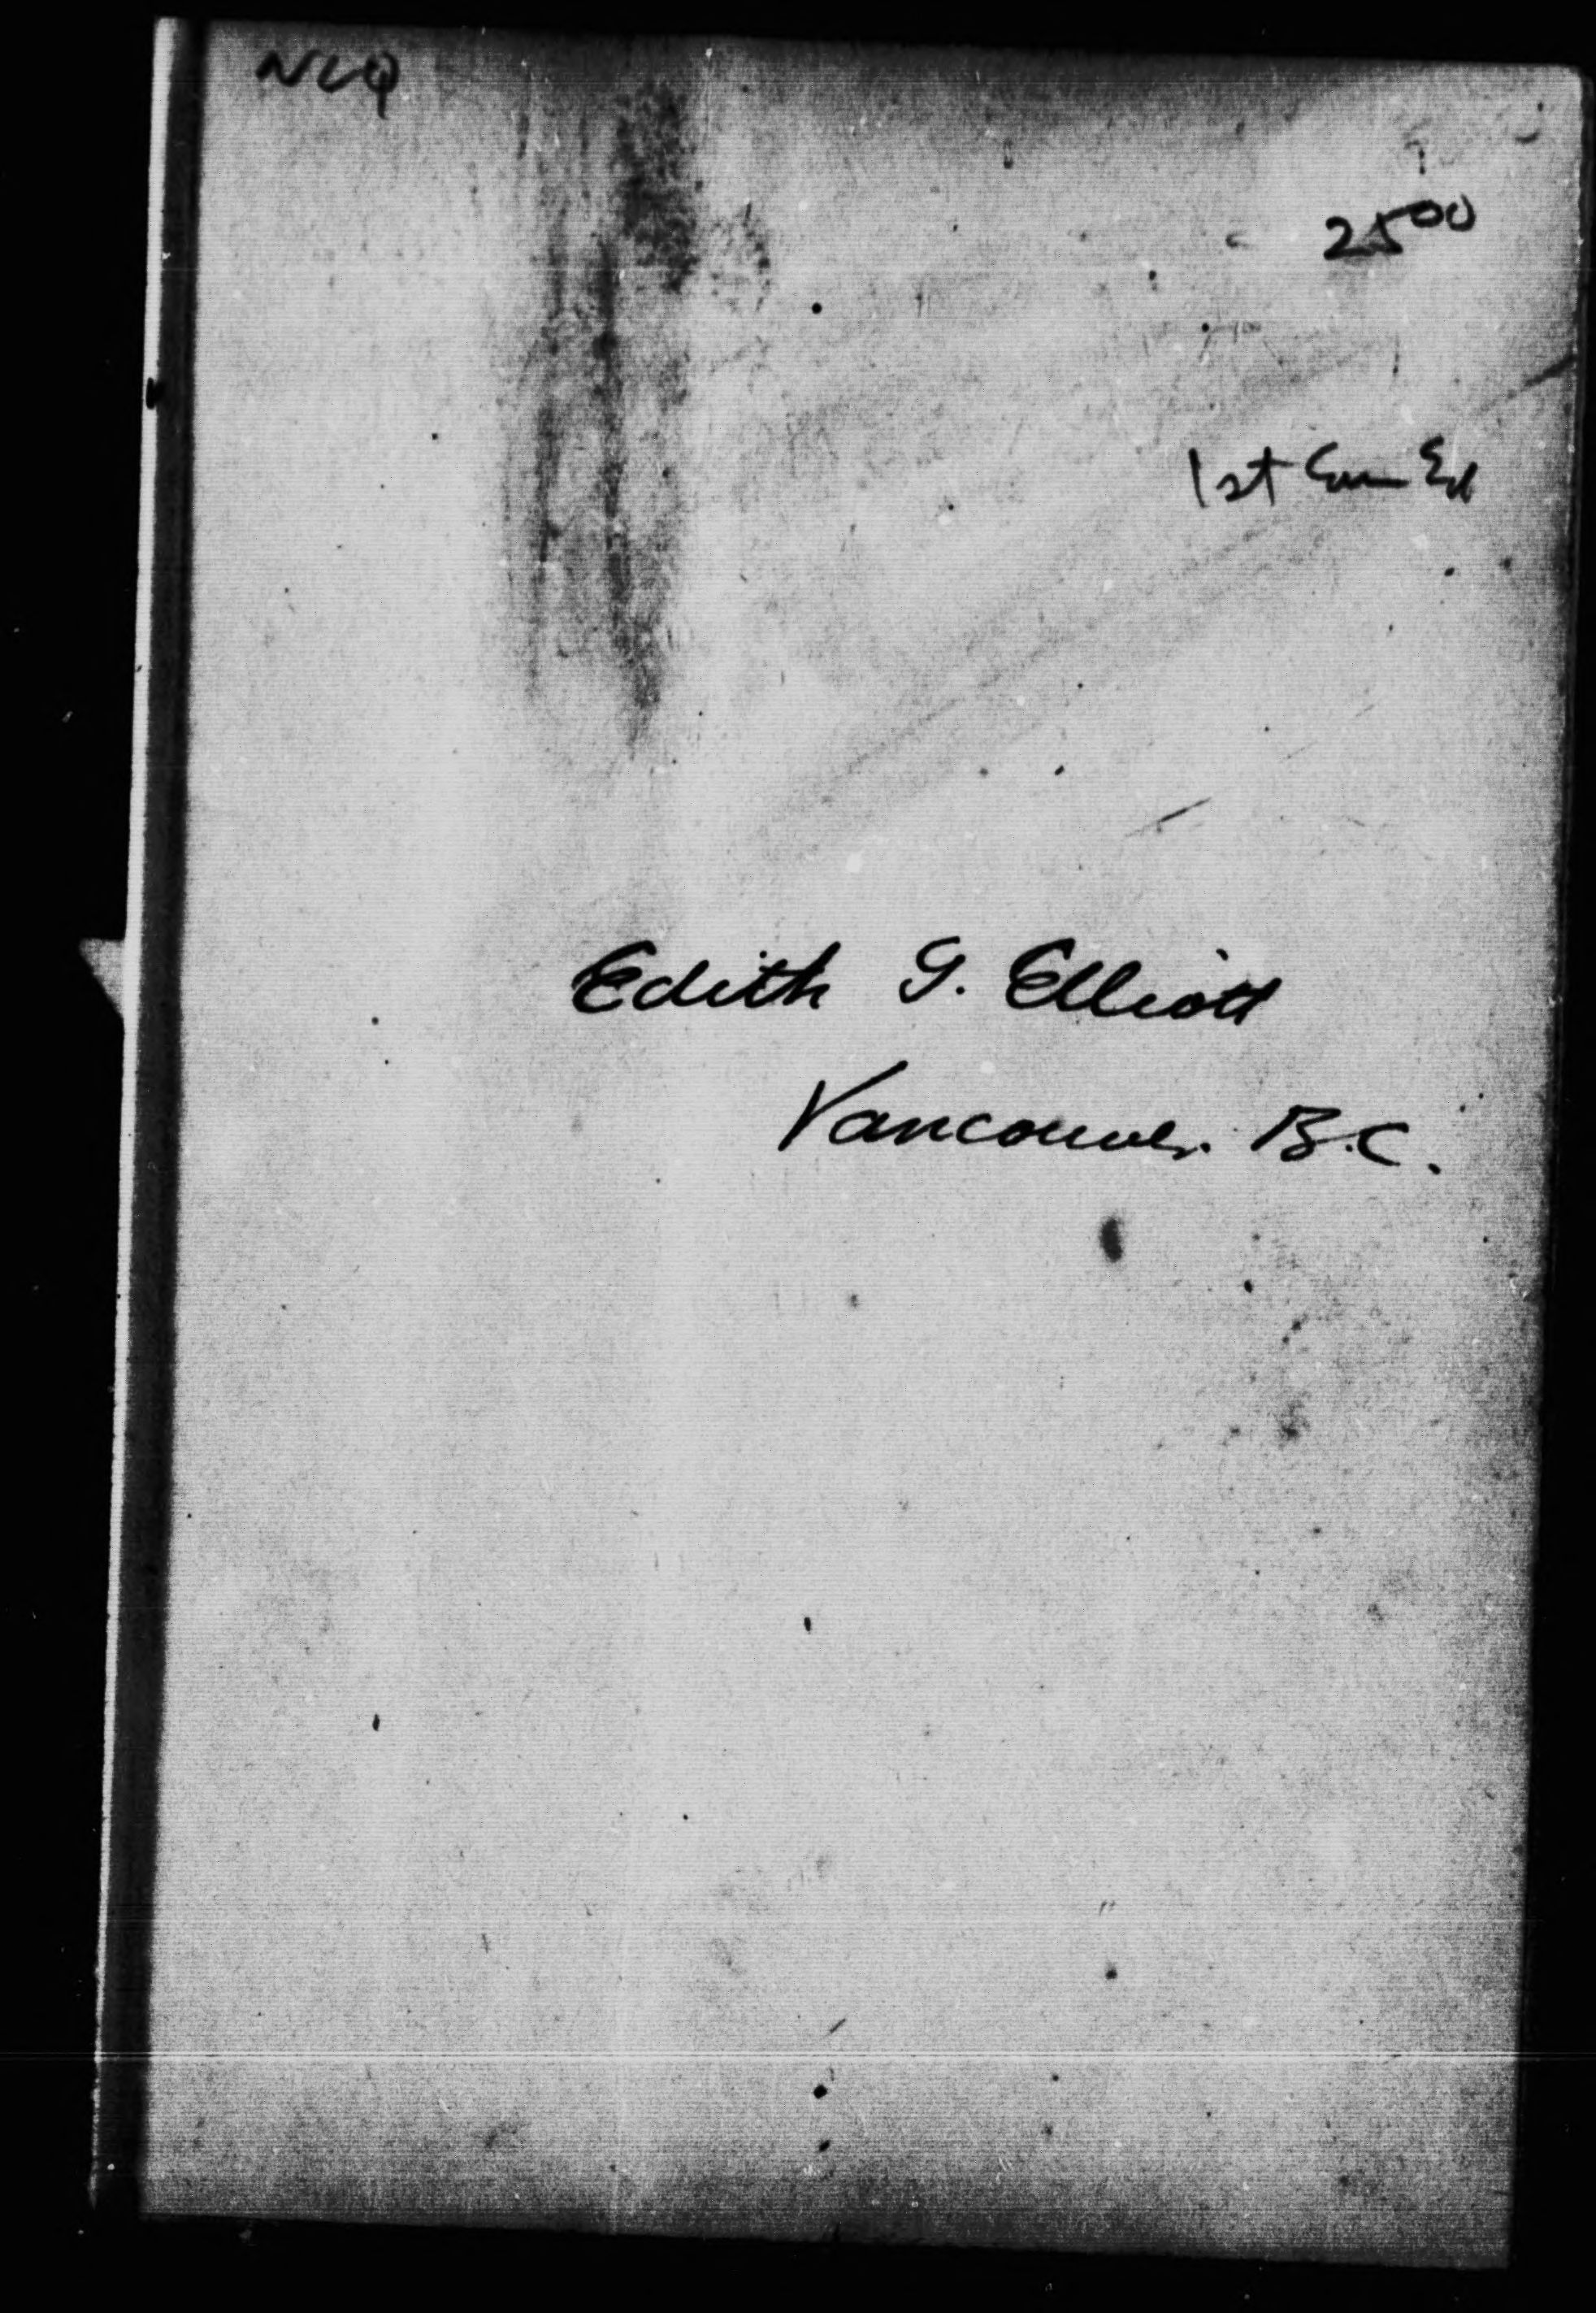 NLQ
25 00
1st Ed
Edith G. Elliott
Vancouver. B.C.